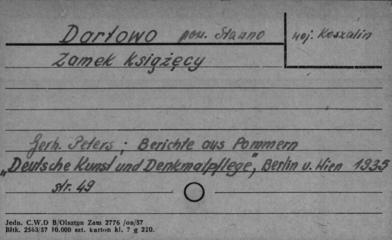 Darłowo pow. Sławno woj. Koszalin
Zamek Książęcy
Gerh. Peters ; Berichte aus Pommern
„Deutsche Kunst und Denkmalpflege", Berlin u. Wien 1935
str. 49
Jedn. C.W.D B/Olsztyn Zam 2776 /on/57
Bltk. 2563/57 10.000 szt. karton kl. 7 g 220.